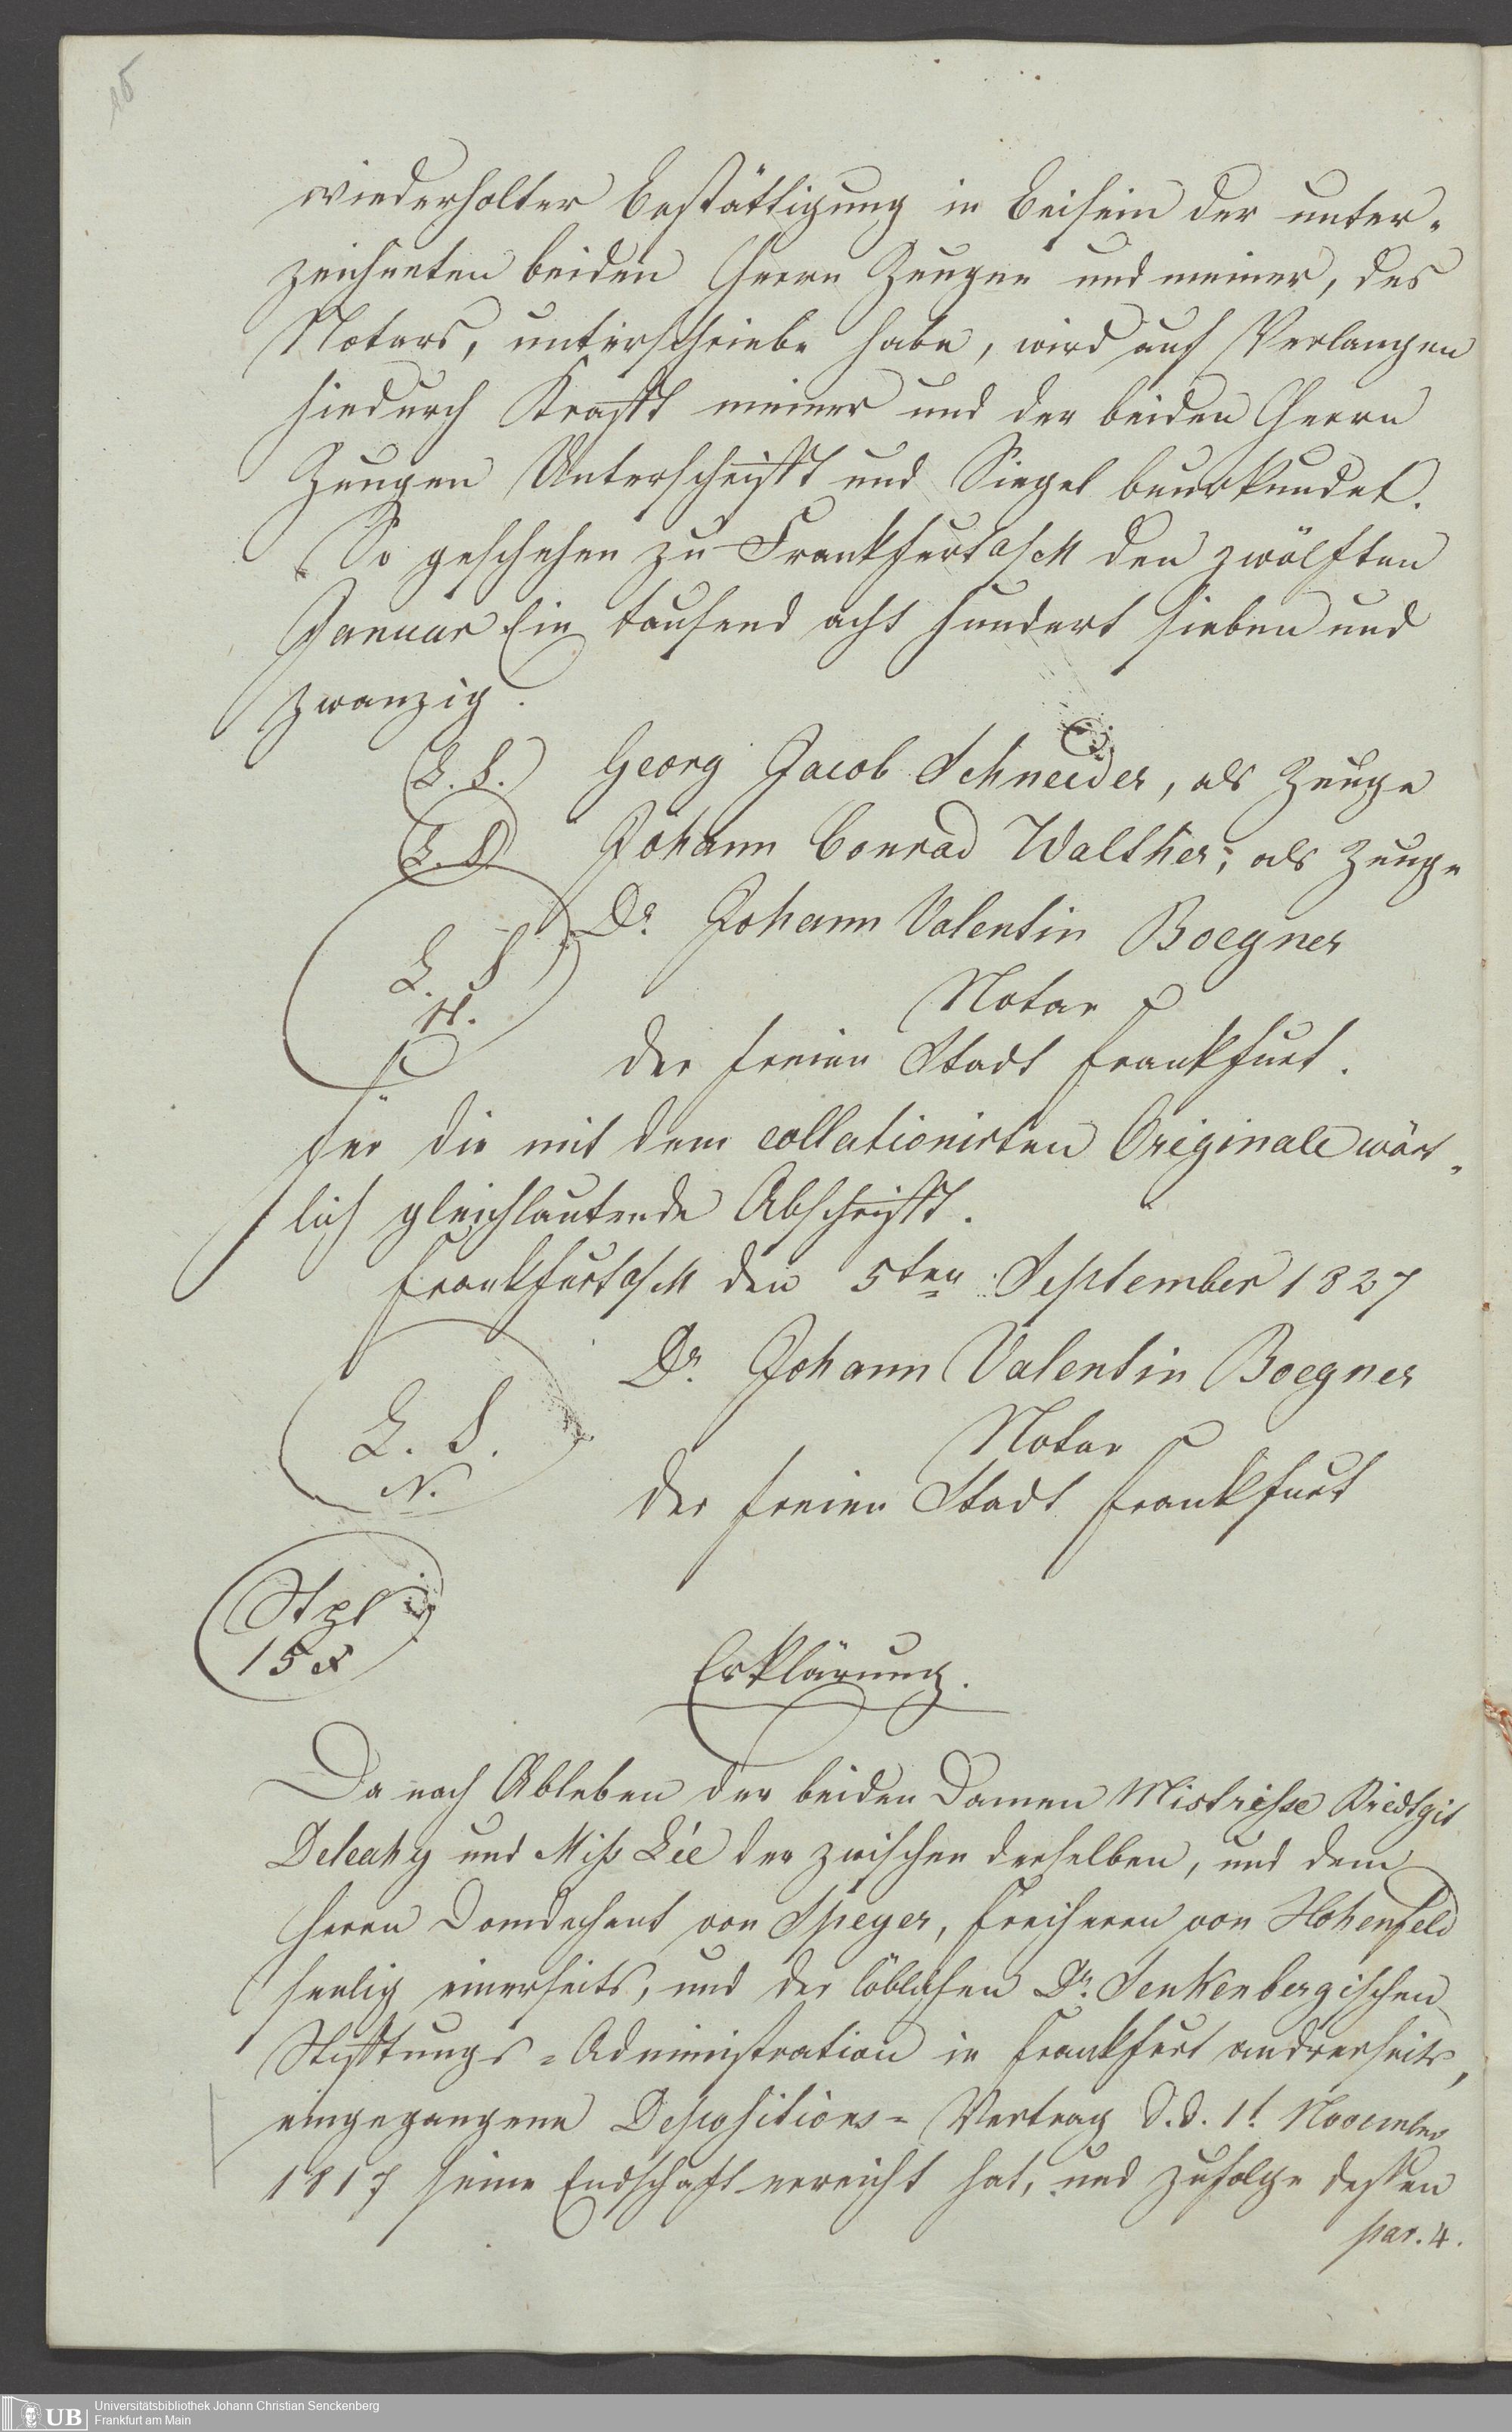 15
wiederholter Bestättigung in Beisein der unter-
zeichneten beiden Herrn Zeugen und meiner, des
Notars, unterschriebe habe, wird auf Verlangen
hiedurch Krafft meiner und der beiden Herrn
Zeugen Unterschrifft und Siegel beurkundet.
So geschehen zu Frankfurt a/M den zwölften
Januar Ein tausend acht hundert sieben und
zwanzig.
(L. S.) Georg Jacob Schneider, als Zeuge
(L. S.) Johann Conrad Walther, als Zeuge
L. S. Dr. Johann Valentin Boegner
N. Notar
der freien Stadt Frankfurt.
Für die mit dem collationirten Originale wört-
lich gleichlautende Abschrifft.
Frankfurt a/M den 5ten September 1827
Dr. Johann Valentin Boegner
L. S. Notar
N. der freien Stadt Frankfurt
Stpl
15 x
Erklärung.
Da nach Ableben der beiden Damen Mistrisse Bridtgit
Deleahy und Miss Lée der zwischen derselben, und dem
Herrn Domdechant von Speyer, Freiherrn von Hohenfeld
seelig einerseits, und der löblichen Dr. Senkenbergischen
Stifftungs-Administration in Frankfurt andrerseits,
eingegangene Depositions-Vertrag d. d. 1t. November
1817 seine Endschaft erreicht hat, und zufolge dessen
par. 4.
UB
Universitätsbibliothek Johann Christian Senckenberg
Frankfurt am Main